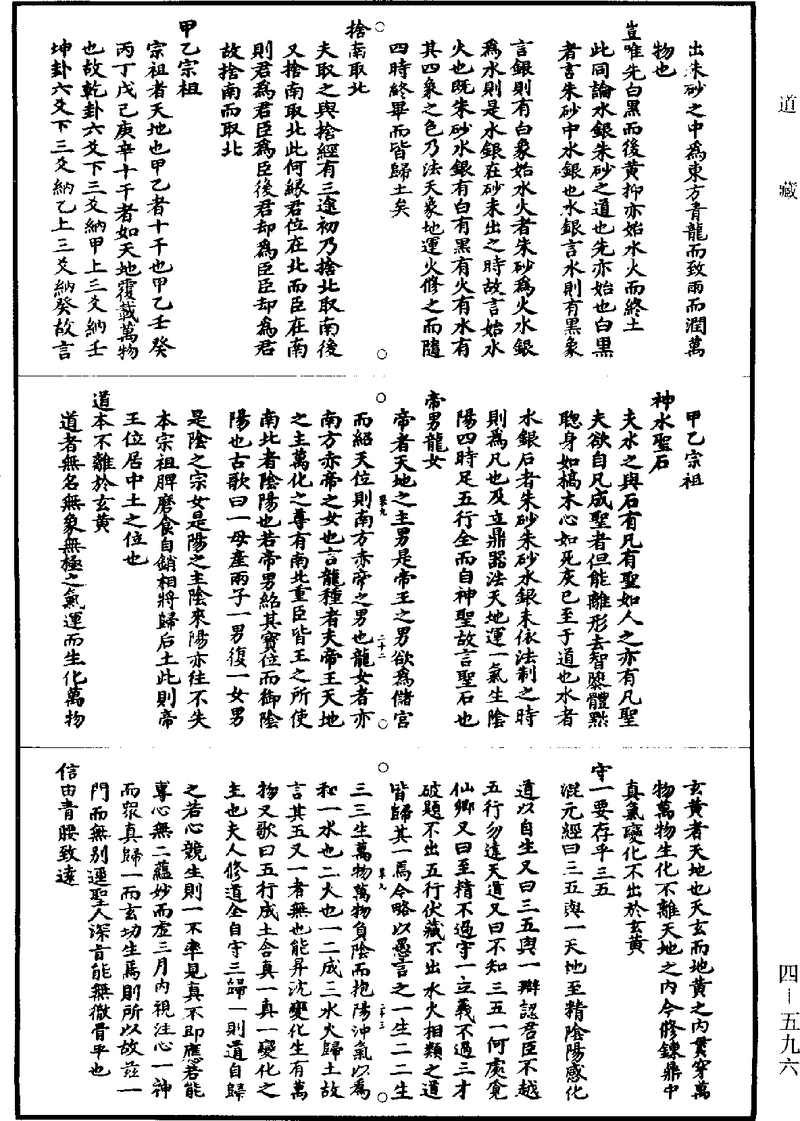 道藏
出朱砂之中為東方青龍而致雨而潤萬
物也
豈唯先白黑而後黃抑亦始水火而終土
此同論水銀朱砂之道也先亦始也白黑
者言朱砂中水銀也水銀言水則有黑象
言銀則有白象始水火者朱砂為火水銀
為水則是水銀在砂未出之時故言始水
火也既朱砂水銀有白有黑有火有水有
其四象之色乃法天象地運火修之而隨
四時終畢而皆歸土矣
捨南取北
夫取之與捨經有三途初乃捨北取南後
又捨南取北此何緣君位在北而臣在南
則君為君臣為臣後君却為臣臣却為君
故捨南而取北
甲乙宗祖
宗祖者天地也甲乙者十干也甲乙壬癸
丙丁戊己庚辛十干者如天地覆載萬物
也故乾卦六爻下三爻納甲上三爻納壬
坤卦六爻下三爻納乙上三爻納癸故言
甲乙宗祖
神水聖石
夫水之與石有凡有聖如人之亦有凡聖
夫欲自凡成聖者但能離形去智黎體黜
聰身如槁木心如死灰已至于道也水者
水銀石者朱砂朱砂水銀未依法制之時
則為凡也及立鼎器法天地運一氣生陰
陽四時足五行全而自神聖故言聖石也
帝男龍女
帝者天地之主男是帝王之男欲為儲宮
而紹天位則南方赤帝之男也龍女者亦
南方赤帝之女也言龍種者夫帝王天地
之主萬化之尊有南北重臣皆王之所使
南北者陰陽也若帝男紹其寶位而御陰
陽也古歌曰一母產兩子一男復一女男
是陰之宗女是陽之主陰來陽亦往不失
本宗祖脾磨食自銷相將歸后土此則帝
王位居中土之位也
道本不離於玄黃
道者無名無象無極之氣運而生化萬物
玄黃者天地也天玄而地黃之內貫穿萬
物萬物生化不離天地之內今修鍊鼎中
真氣變化不出於玄黃
守一要存乎三五
混元經曰三五與一天地至精陰陽感化
道以自生又曰三五與一辯認君臣不越
五行勿違天道又曰不知三五一何處覓
仙鄉又曰至精不過守一立義不過三才
破題不出五行伏藏不出水火相類之道
皆歸其一焉今略以愚言之一生二二生
三三生萬物萬物負陰而抱陽沖氣以為
和一水也二火也一二成三水火歸土故
言其五又一者無也能昇沈變化生有萬
物又歌曰五行成土合真一真一變化之
主也夫人修道全自守三歸一則道自歸
之若心競生則一不率見真不即應若能
專心無二蘊妙而虛三月內視注心一神
而眾真歸一而玄功生焉則所以故茲一
門而無別逕聖人深旨能無徹骨乎也
信由青腰致達
四－五九六